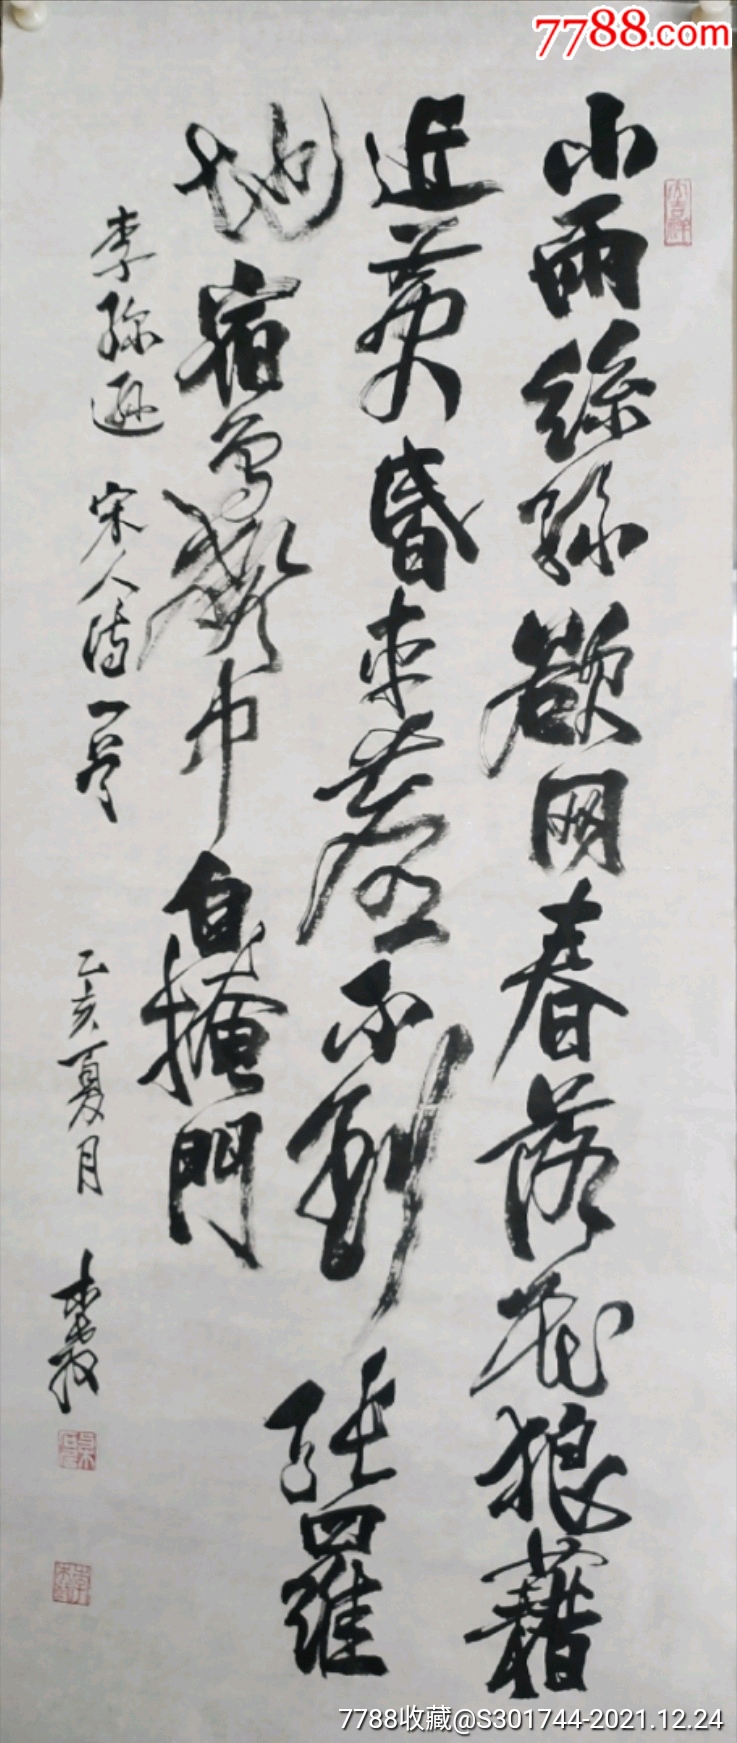 7788.com
小雨絲絲欲网春落花狼藉
近黄昏車塵不到張羅
地宿鳥聲中自掩門
李弥遜 宋人詩一首 乙亥夏月
7788收藏@S301744-2021.12.24